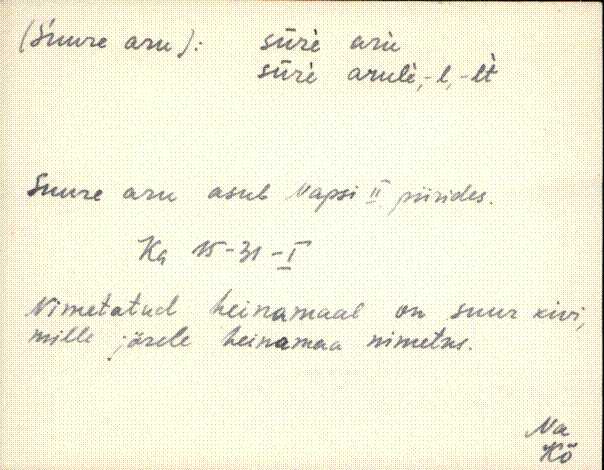 (Suure aru): sūrè arù
sūrè arulè, -l, -lt̀
Suure aru asub Napsi II piirides.
Kg 15-31-I
Nimetatud heinamaal on suur kivi,
mille järele heinamaa nimetus.
Na
Kõ